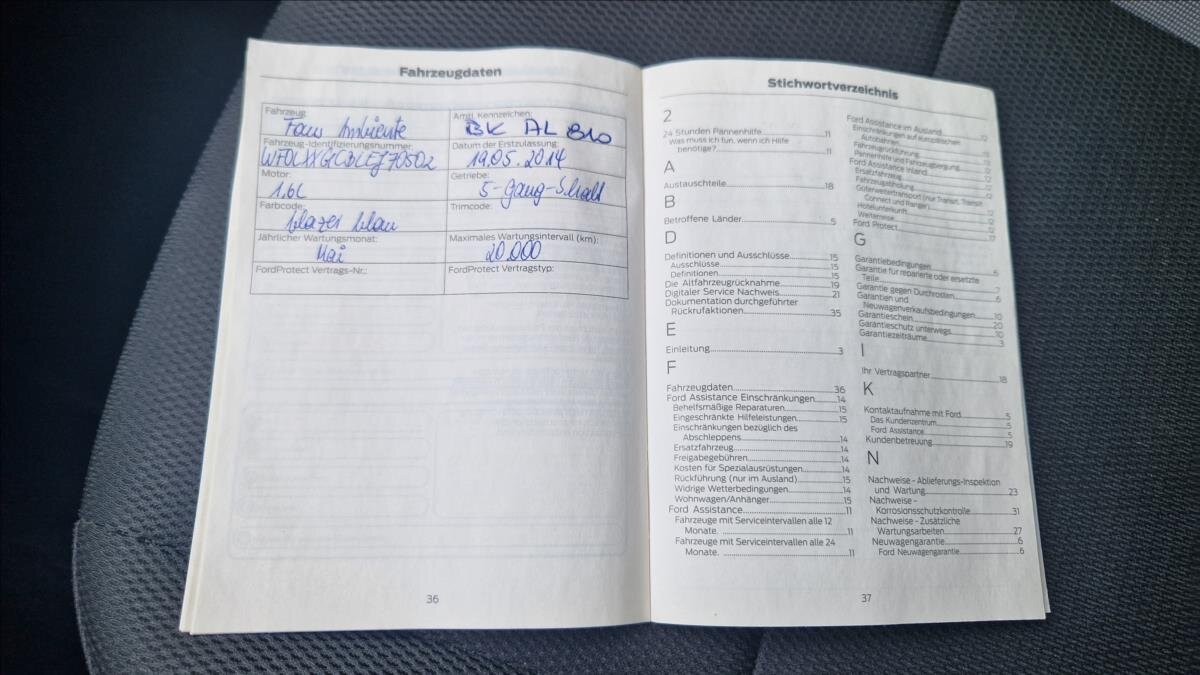 Fahrzeugdaten
Fahrzeug:
Focus Ambiente
Amtl. Kennzeichen:
BK AL 810
Fahrzeug-Identifizierungsnummer:
Datum der Erstzulassung:
19.05.2014
Motor:
1,6L
Getriebe:
5-Gang-Schalt
Farbcode:
blazer blau
Trimcode:
Jährlicher Wartungsmonat:
Mai
Maximales Wartungsintervall (km):
20.000
FordProtect Vertrags-Nr.:
FordProtect Vertragstyp:
36
Stichwortverzeichnis
2
24 Stunden Pannenhilfe 11
Was muss ich tun, wenn ich Hilfe
benötige? 11
A
Austauschteile 18
B
Betroffene Länder 5
D
Definitionen und Ausschlüsse 15
Ausschlüsse 15
Definitionen 15
Die Altfahrzeugrücknahme 19
Digitaler Service Nachweis 21
Dokumentation durchgeführter
Rückrufaktionen 35
E
Einleitung 3
F
Fahrzeugdaten 36
Ford Assistance Einschränkungen 14
Behelfsmäßige Reparaturen 15
Eingeschränkte Hilfeleistungen 15
Einschränkungen bezüglich des
Abschleppens 14
Ersatzfahrzeug 14
Freigabegebühren 14
Kosten für Spezialausrüstungen 14
Rückführung (nur im Ausland) 15
Widrige Wetterbedingungen 14
Wohnwagen/Anhänger 15
Ford Assistance 11
Fahrzeuge mit Serviceintervallen alle 12
Monate. 11
Fahrzeuge mit Serviceintervallen alle 24
Monate. 11
Ford Assistance im Ausland 12
Einschränkungen auf europäischen
Autobahnen
Fahrzeugrückführung 13
Pannenhilfe und Fahrzeugbergung
Ford Assistance Inland 12
Ersatzfahrzeug 12
Fahrzeugabholung 12
Güterweitertransport (nur Transit, Transit
Connect und Ranger) 12
Hotelunterkunft 12
Weiterreise 12
Ford Protect 17
G
Garantiebedingungen 6
Garantie für reparierte oder ersetzte
Teile 7
Garantie gegen Durchrosten 6
Garantien und
Neuwagenverkaufsbedingungen 10
Garantieschein 20
Garantieschutz unterwegs 10
Garantiezeiträume 3
I
Ihr Vertragspartner 18
K
Kontaktaufnahme mit Ford 5
Das Kundenzentrum 5
Ford Assistance 5
Kundenbetreuung 19
N
Nachweise - Ablieferungs-Inspektion
und Wartung 23
Nachweise -
Korrosionsschutzkontrolle 31
Nachweise - Zusätzliche
Wartungsarbeiten 27
Neuwagengarantie 6
Ford Neuwagengarantie 6
37